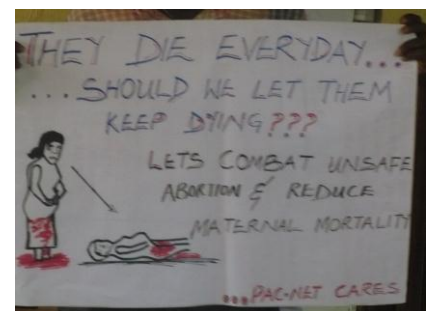 THEY DIE EVERYDAY...
...SHOULD WE LET THEM
KEEP DYING???
LETS COMBAT UNSAFE
ABORTION & REDUCE
MATERNAL MORTALITY
...PAC-NET CARES